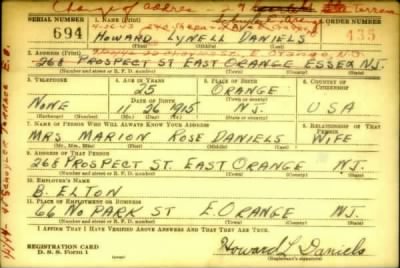 Change of address
SERIAL NUMBER 1. NAME (Print) ORDER NUMBER
694 HOWARD LYNELL DANIELS 435
(First) (Middle) (Last)
2. ADDRESS (Print)
268 PROSPECT ST EAST ORANGE ESSEX N.J.
(Number and street or R. F. D. number) (Town) (County) (State)
3. TELEPHONE 4. AGE IN YEARS 5. PLACE OF BIRTH 6. COUNTRY OF CITIZENSHIP
25 ORANGE
DATE OF BIRTH (Town or county)
NONE 11 26 1915 N.J. USA
(Exchange) (Number) (Mo.) (Day) (Yr.) (State or country)
7. NAME OF PERSON WHO WILL ALWAYS KNOW YOUR ADDRESS 8. RELATIONSHIP OF THAT PERSON
MRS MARION ROSE DANIELS WIFE
(Mr., Mrs., Miss) (First) (Middle) (Last)
9. ADDRESS OF THAT PERSON
268 PROSPECT ST. EAST ORANGE N.J.
(Number and street or R. F. D. number) (Town) (County) (State)
10. EMPLOYER'S NAME
B. ELTON
11. PLACE OF EMPLOYMENT OR BUSINESS
66 NO PARK ST E. ORANGE N.J.
(Number and street or R. F. D. number) (Town) (County) (State)
I AFFIRM THAT I HAVE VERIFIED ABOVE ANSWERS AND THAT THEY ARE TRUE.
REGISTRATION CARD
D. S. S. Form 1
Howard L Daniels
(Registrant's signature)